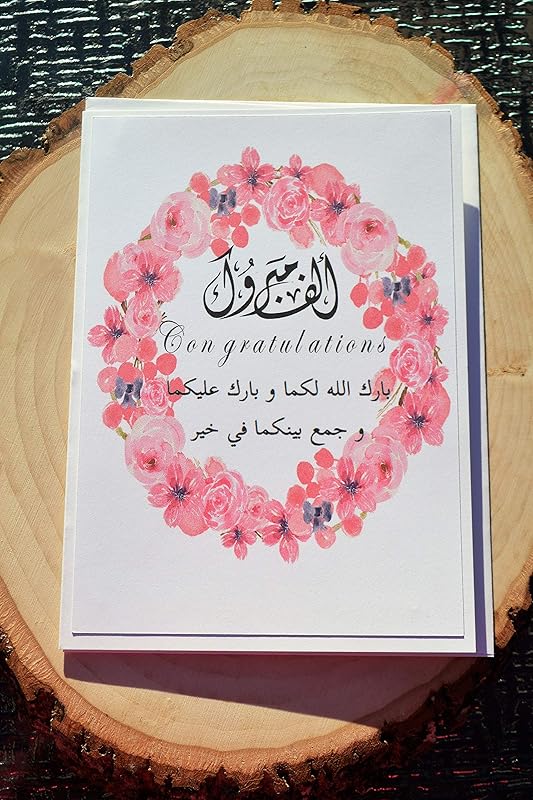 ألف مبروك
Congratulations
بارك الله لكما و بارك عليكما
و جمع بينكما في خير